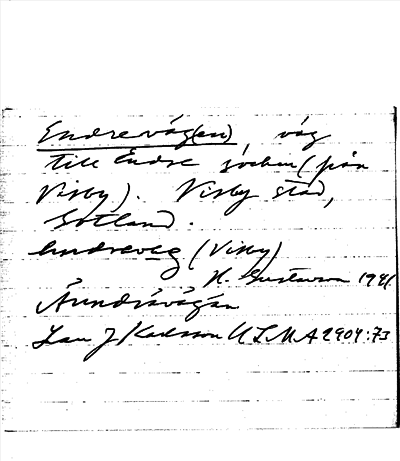 Endreväg(en), väg
till Endre socken (från
Visby). Visby stad,
Gotland.
Endreveg (Visby)
H. Gustavson 1941.
Ändrävägän
Lars J Karlsson ULMA 2904:73